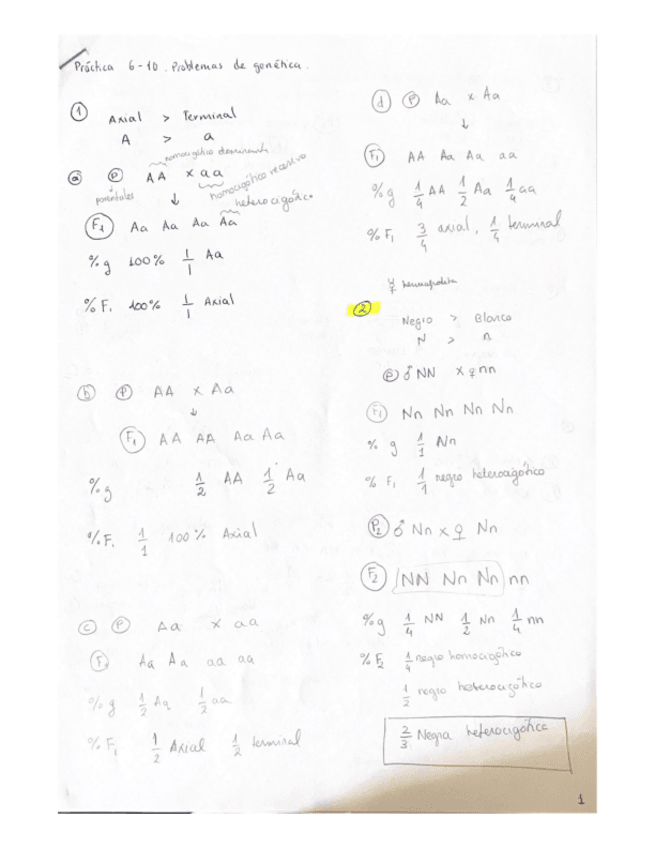 Práctica 6-10. Problemas de genética.
① Axial > Terminal
A > a
homocigótico dominante
ⓐ Ⓟ AA x aa
parentales
homocigótico recesivo
heterocigótico
↓
F₁ Aa Aa Aa Aa
%g 100% 1/1 Aa
%F. 100% 1/1 Axial
ⓑ Ⓟ AA x Aa
↓
F₁ AA AA Aa Aa
%g 1/2 AA 1/2 Aa
%F. 1/1 100% Axial
ⓒ Ⓟ Aa x aa
F₁ Aa Aa aa aa
%g 1/2 Aa 1/2 aa
%F₁ 1/2 Axial 1/2 terminal
ⓓ Ⓟ Aa x Aa
↓
F₁ AA Aa Aa aa
%g 1/4 AA 1/2 Aa 1/4 aa
%F₁ 3/4 axial, 1/4 terminal
hermafrodita
②
Negro > Blanco
N > n
Ⓟ ♂ NN x ♀ nn
F₁ Nn Nn Nn Nn
%g 1/1 Nn
%F₁ 1/1 negro heterocigótico
P₂ ♂ Nn x ♀ Nn
F₂ NN Nn Nn nn
%g 1/4 NN 1/2 Nn 1/4 nn
%F₂ 1/4 negro homocigótico
1/2 negro heterocigótico
2/3 Negra heterocigótica
1